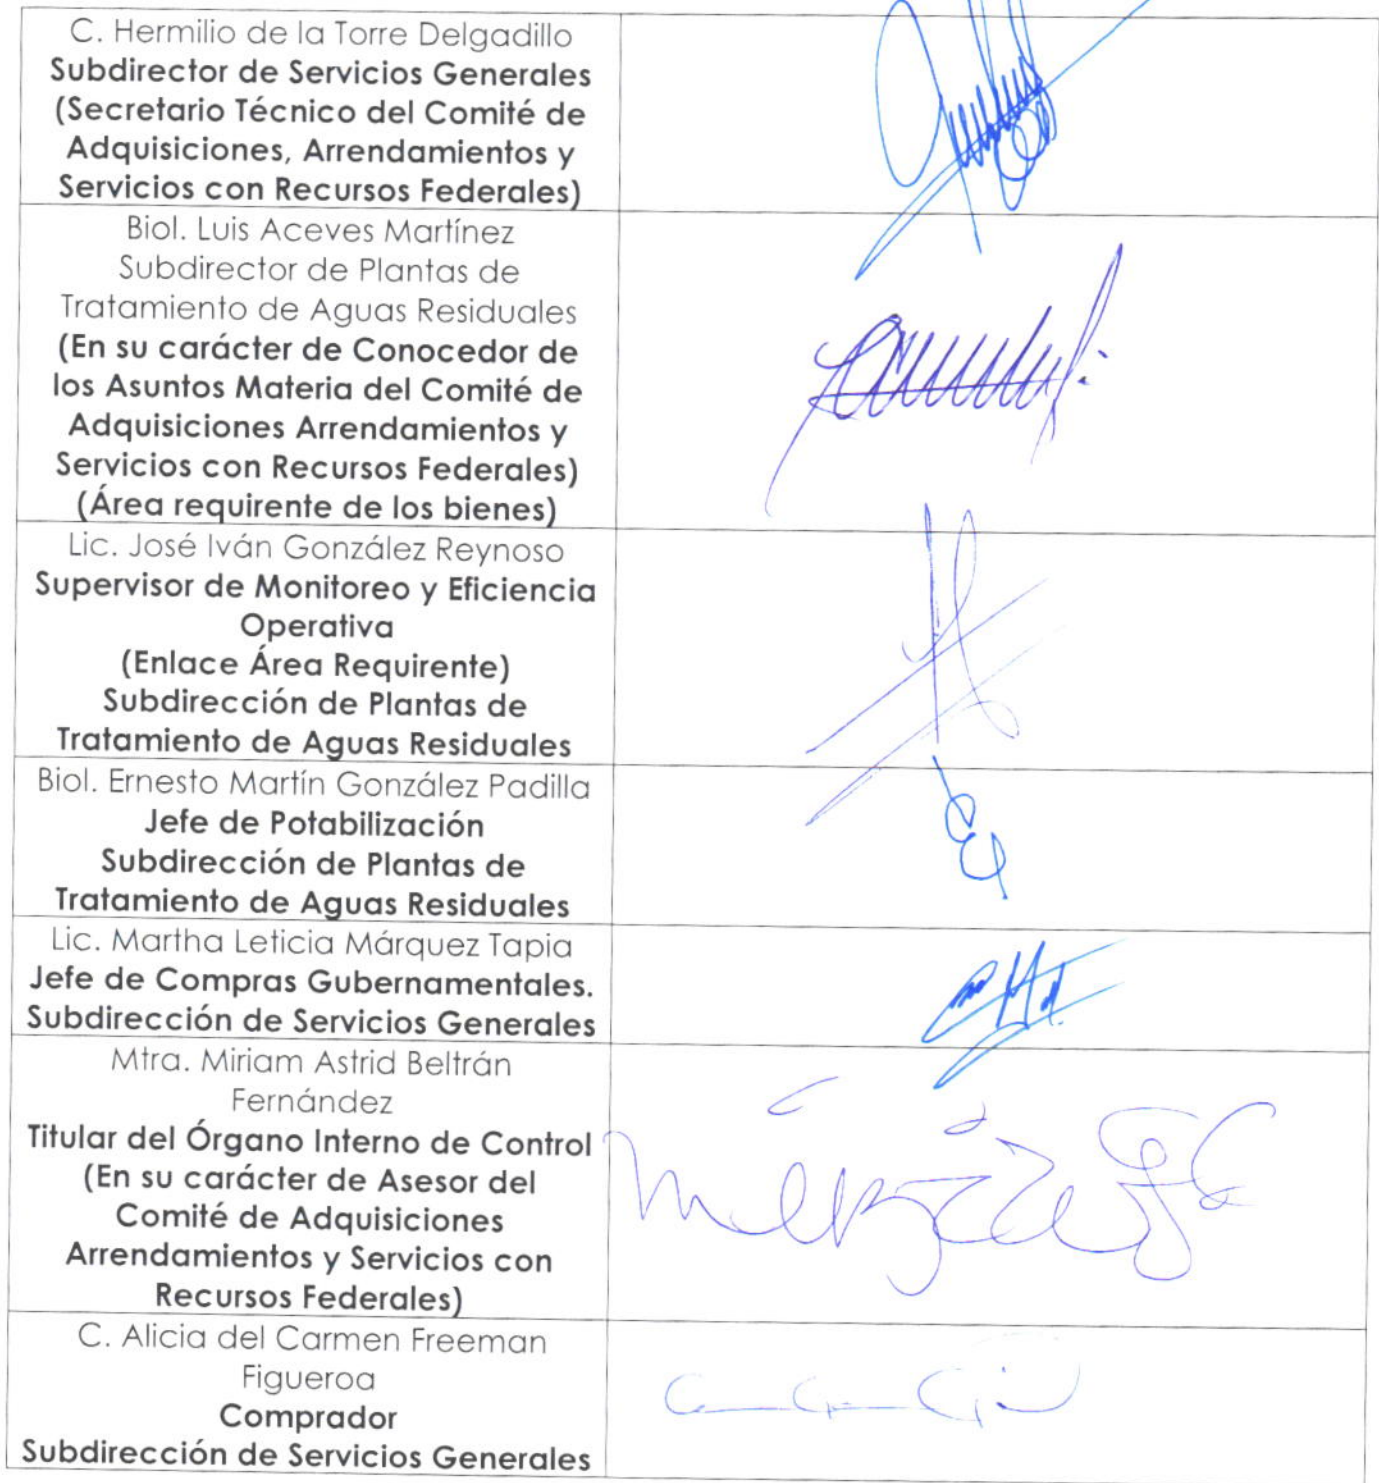 C. Hermilio de la Torre Delgadillo
Subdirector de Servicios Generales
(Secretario Técnico del Comité de
Adquisiciones, Arrendamientos y
Servicios con Recursos Federales)
Biol. Luis Aceves Martínez
Subdirector de Plantas de
Tratamiento de Aguas Residuales
(En su carácter de Conocedor de
los Asuntos Materia del Comité de
Adquisiciones Arrendamientos y
Servicios con Recursos Federales)
(Área requirente de los bienes)
Lic. José Iván González Reynoso
Supervisor de Monitoreo y Eficiencia
Operativa
(Enlace Área Requirente)
Subdirección de Plantas de
Tratamiento de Aguas Residuales
Biol. Ernesto Martín González Padilla
Jefe de Potabilización
Subdirección de Plantas de
Tratamiento de Aguas Residuales
Lic. Martha Leticia Márquez Tapia
Jefe de Compras Gubernamentales.
Subdirección de Servicios Generales
Mtra. Miriam Astrid Beltrán
Fernández
Titular del Órgano Interno de Control
(En su carácter de Asesor del
Comité de Adquisiciones
Arrendamientos y Servicios con
Recursos Federales)
C. Alicia del Carmen Freeman
Figueroa
Comprador
Subdirección de Servicios Generales